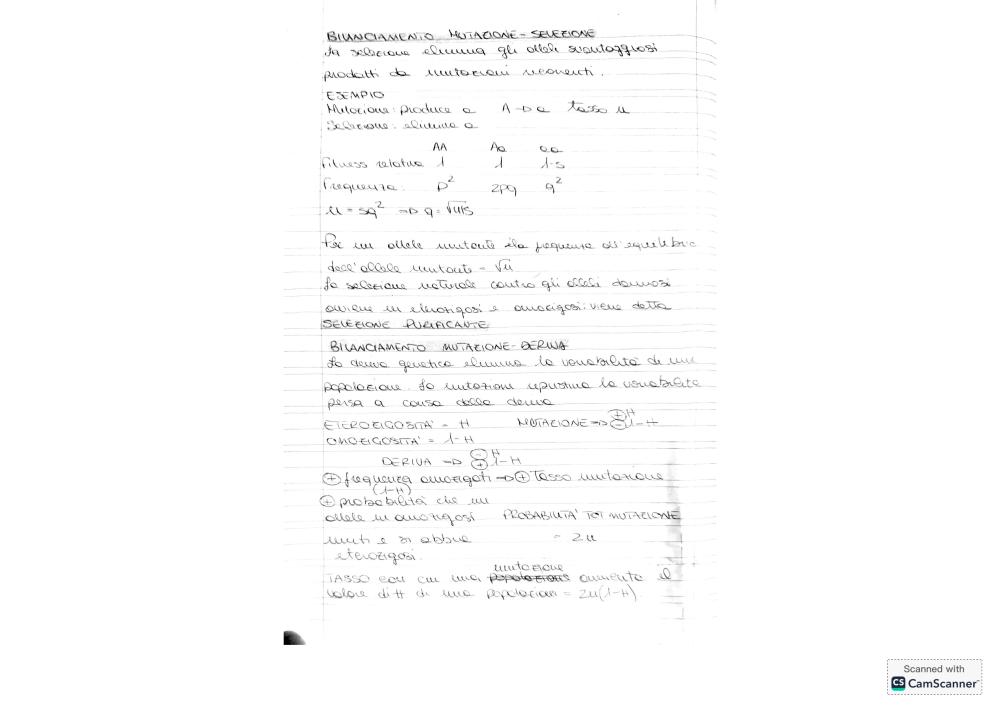 BILANCIAMENTO MUTAZIONE-SELEZIONE
La selezione elimina gli alleli svantaggiosi
prodotti da mutazioni ricorrenti.
ESEMPIO
Mutazione: produce a A→a tasso u
Selezione: elimina a
AA Aa aa
Fitness relativa 1 1 1-s
Frequenza p² 2pq q²
u = sq² => q = √u/s
Per un allele mutante la frequenza all'equilibrio
dell'allele mutante = √u
La selezione naturale contro gli alleli dannosi
avviene in eterozigosi e omozigosi: viene detta
SELEZIONE PURIFICANTE
BILANCIAMENTO MUTAZIONE-DERIVA
La deriva genetica elimina la variabilità di una
popolazione. La mutazioni ripristina la variabilità
persa a causa della deriva
ETEROZIGOSITA' = H MUTAZIONE => ⊕H ⊖1-H
OMOZIGOSITA' = 1-H
DERIVA => ⊖H ⊕1-H
⊕ frequenza omozigoti → ⊕ tasso mutazione
(1-H)
⊕ probabilità che un
allele in omozigosi PROBABILITA' TOT MUTAZIONE
muti e si abbia = 2u
eterozigosi.
mutazione
TASSO con cui una popolazione aumenta il
valore di H di una popolazioni = 2u(1-H)
Scanned with
CS CamScanner